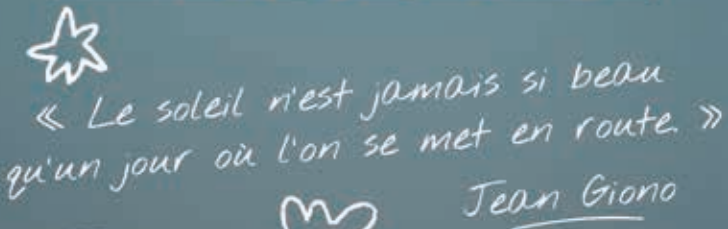 « Le soleil n'est jamais si beau
qu'un jour où l'on se met en route. »
Jean Giono